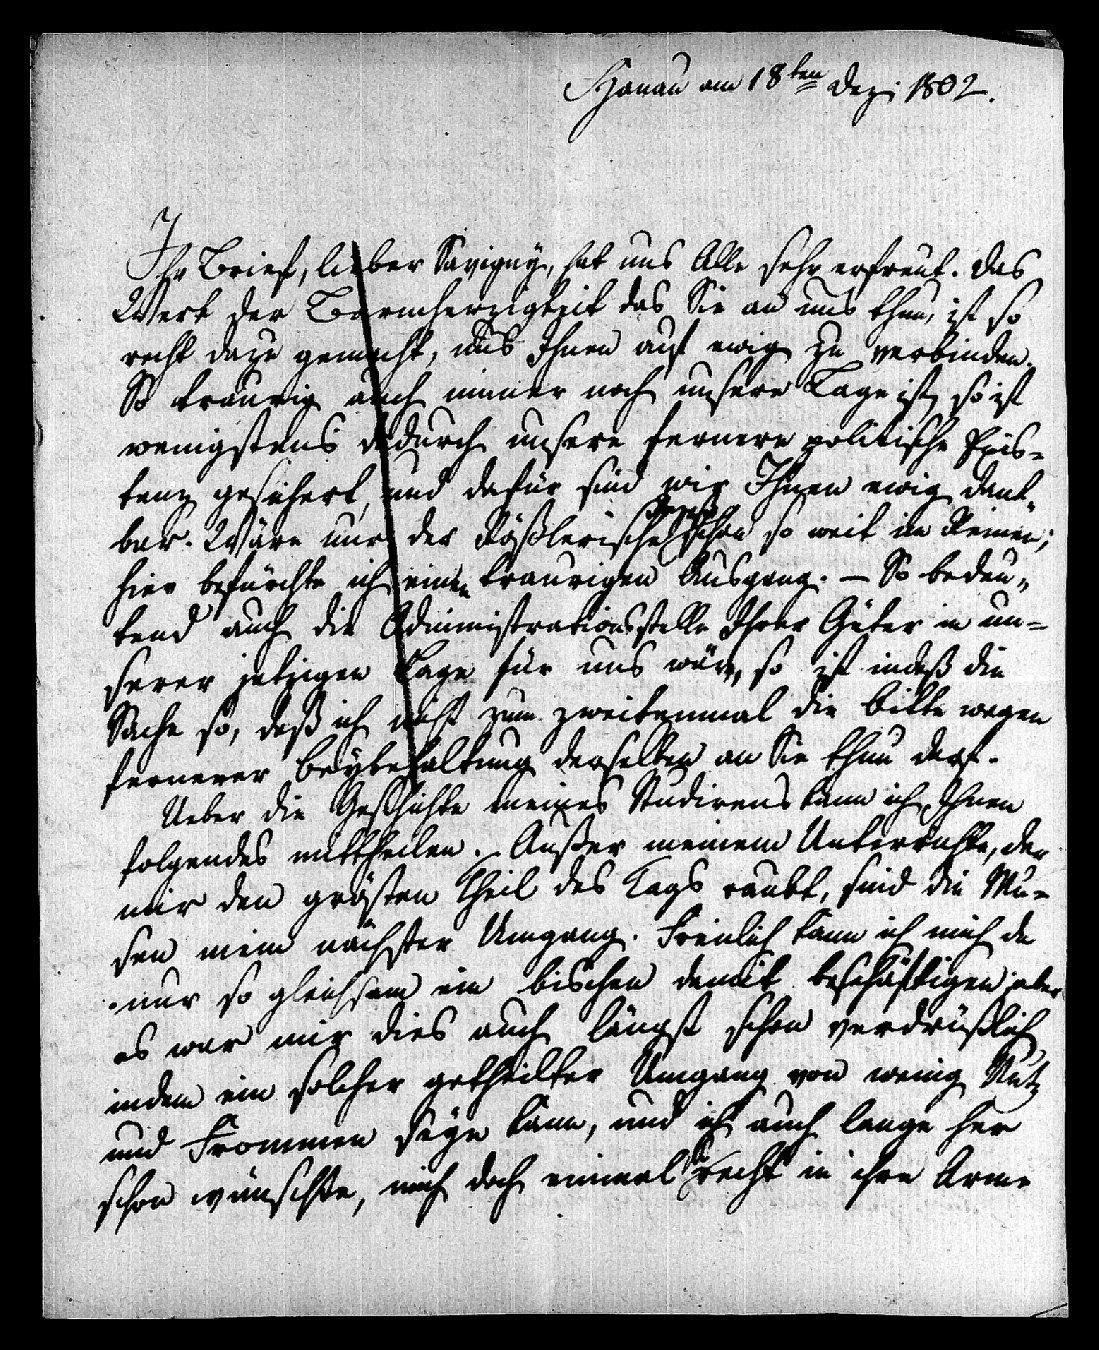 Hanau am 18ten Dez. 1802.
Ihr Brief, lieber Savigny, hat uns Alle sehr erfreut. Das
Werk der Barmherzigkeit das Sie an uns thun, ist so
recht dazu gemacht, uns Ihnen auf ewig zu verbinden.
So traurig auch immer noch unsere Lage ist, so ist
wenigstens dadurch unsere fernere politische Exis-
tenz gesichert, und dafür sind wir Ihnen ewig dank
bar. Wäre nur der Rößlerische schon so weit im Reinen;
hier befürchte ich einen traurigen Ausgang. – So bedeu-
tend auch die Administrationsstelle Ihrer Güter in un-
serer jetzigen Lage für uns wäre, so ist indeß die
Sache so, daß ich nicht zum zweitenmal die bitte wegen
fernerer beybehaltung derselben an Sie thun darf.
Ueber die Geschichte meines Studirens kann ich Ihnen
folgendes mittheilen. Außer meinem Unterrichte, der
mir den größten Theil des Tags raubt, sind die Mu-
sen mein nächster Umgang. Freilich kann ich mich da
nur so gleichsam ein bischen damit beschäftigen, aber
es war mir dies auch längst schon verdrüßlich
indem ein solcher getheilter Umgang von wenig Nutz
und Frommen seyn kann, und ich auch lange her
schon wünschte, mich doch einmal recht in ihre Arme